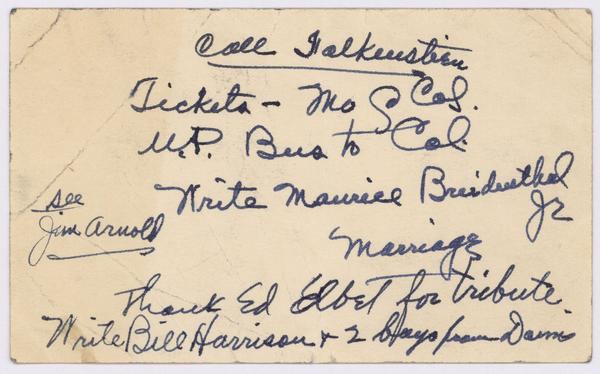 Call Falkenstien
Tickets - Mo & Col.
U.P. Bus to Col.
Write Maurice Breidenthal Jr
see
Jim Arnold
Marriage
Thank Ed Elbet for tribute.
Write Bill Harrison + 2 boys from Dawn